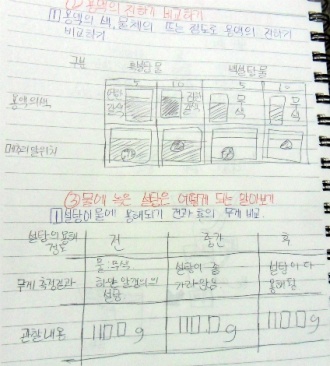 ② 용액의 진하기 비교하기
① 용액의 색, 물체의 뜨는 정도로 용액의 진하기
비교하기
구분 흑설탕물 백설탕물
5 10 5 10
용액의 색 연한 갈색 진한 갈색 무색 무색
메추리알 위치
③ 물에 녹은 설탕은 어떻게 되는지 알아보기
① 설탕이 물에 용해되기 전과 후의 무게 비교.
설탕의 용해 정도 전 중간 후
무게 측정결과
물: 무색
하얀 알갱이의 설탕
설탕이 좀 가라앉음
설탕이 다 용해됨
관찰 내용 110.0g 110.0g 110.0g